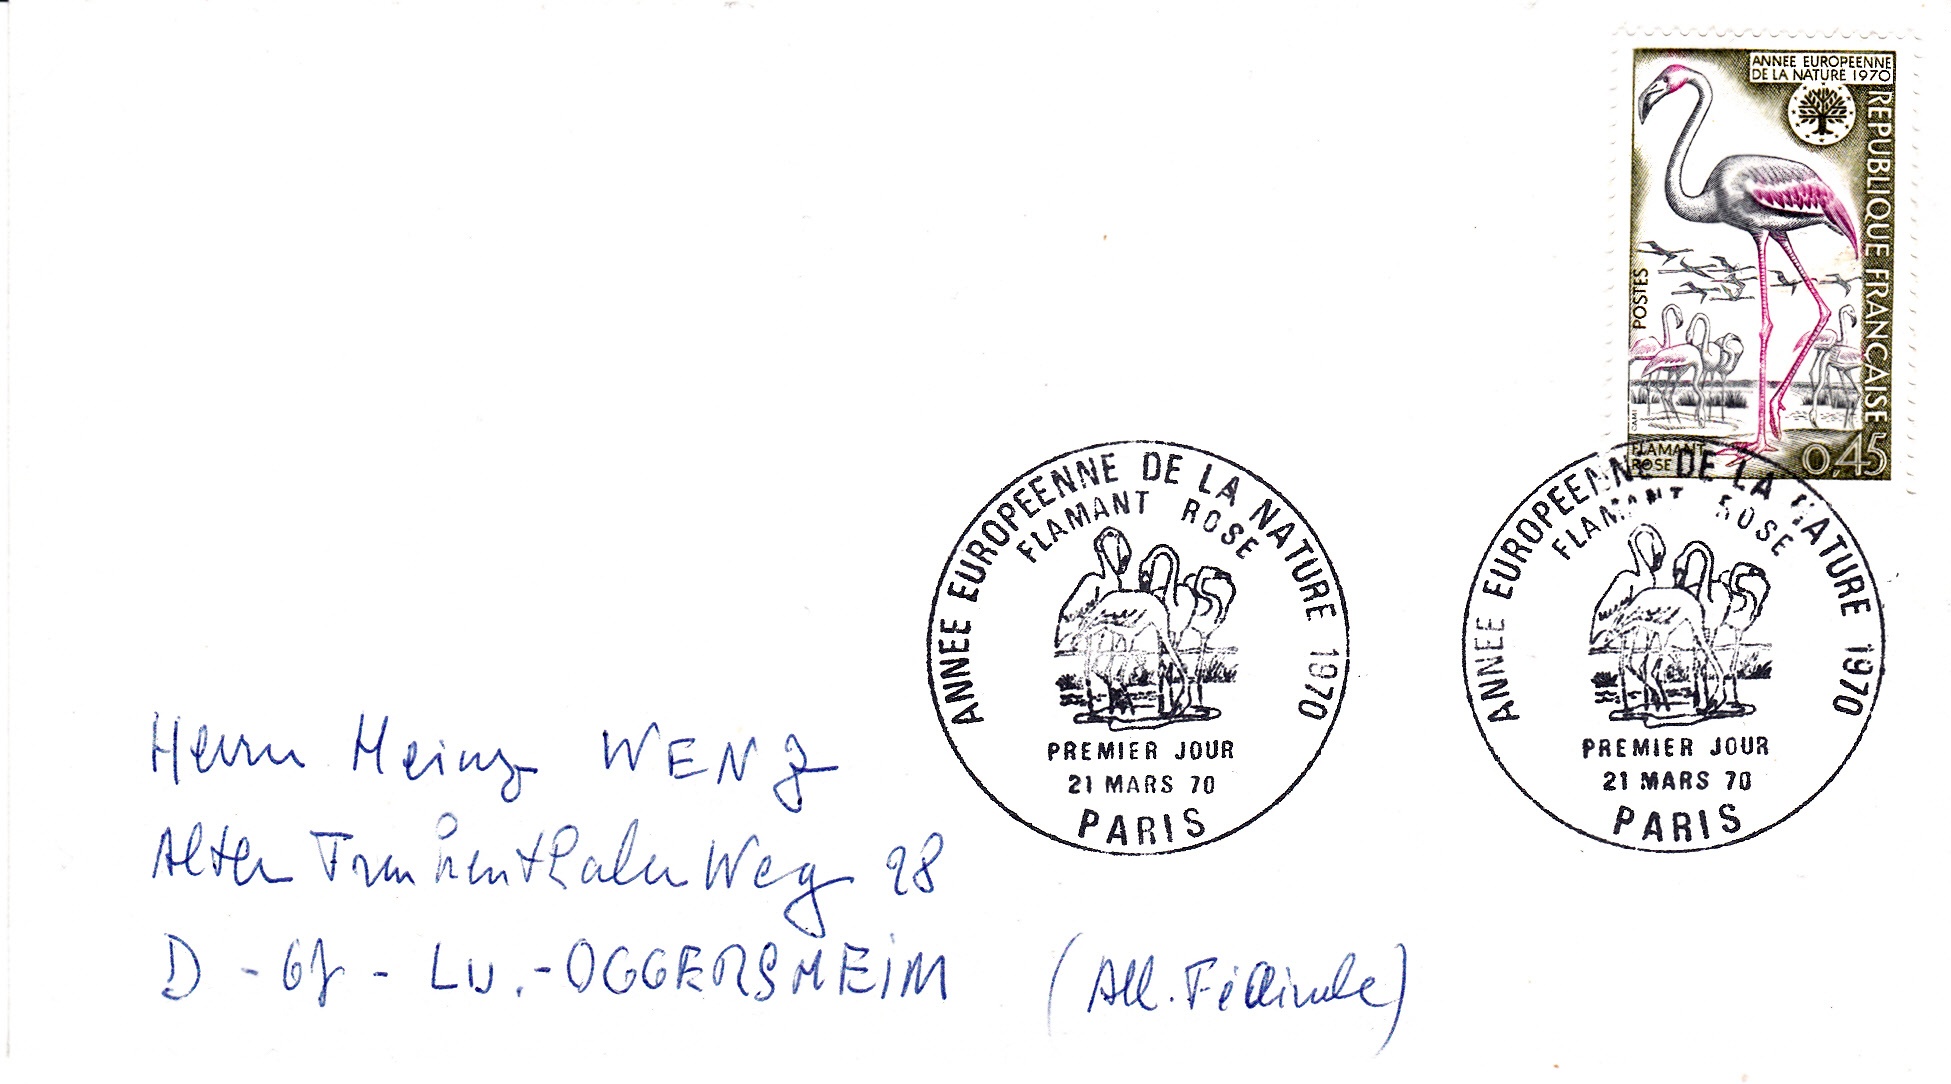 ANNEE EUROPEENNE
DE LA NATURE 1970
REPUBLIQUE FRANCAISE
POSTES
CAMI
FLAMANT
ROSE
0,45
ANNEE EUROPEENNE DE LA NATURE 1970
FLAMANT ROSE
PREMIER JOUR
21 MARS 70
PARIS
ANNEE EUROPEENNE DE LA NATURE 1970
FLAMANT ROSE
PREMIER JOUR
21 MARS 70
PARIS
Herrn Heinz WENZ
Alter Frankenthaler Weg 28
D - 67 - LU.-OGGERSHEIM (All. Fédérale)